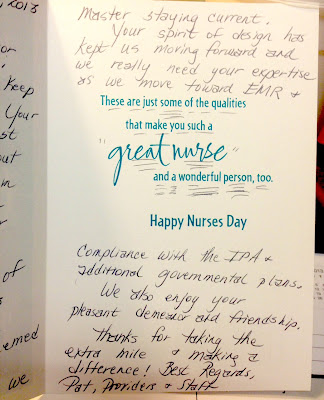 2013
Keep
Your
of
we
Master staying current.
Your spirit of design has
kept us moving forward and
we really need your expertise
as we move toward EMR &
These are just some of the qualities
that make you such a
"great nurse"
and a wonderful person, too.
Happy Nurses Day
Compliance with the IPA &
additional governmental plans.
We also enjoy your
pleasant demeanor and friendship.
Thanks for taking the
extra mile & making a
difference! Best Regards,
Pat, Providers & Staff